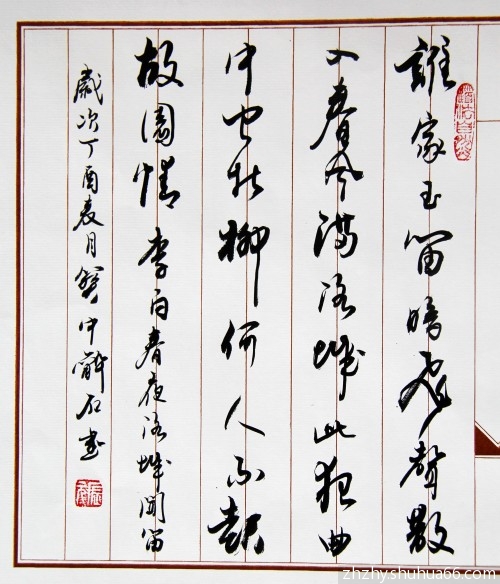 誰家玉笛暗飛聲散
入春风满洛城此夜曲
中闻折柳何人不起
故園情 李白春夜洛城聞笛
歲次丁酉春月 中 石書
zhzhy.shuhua66.com